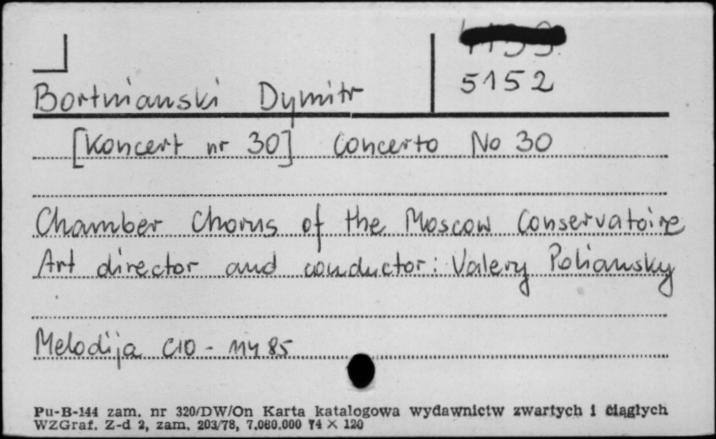 5152
Bortnianski Dymitr
[Koncert nr 30] Concerto No 30
Chamber Chorus of the Moscow Conservatoire
Art director and conductor: Valery Poliansky
Melodija C10 - 11485
Pu-B-144 zam. nr 320/DW/On Karta katalogowa wydawnictw zwartych i ciągłych
WZGraf. Z-d 2, zam. 203/78, 7.000.000 74 × 120